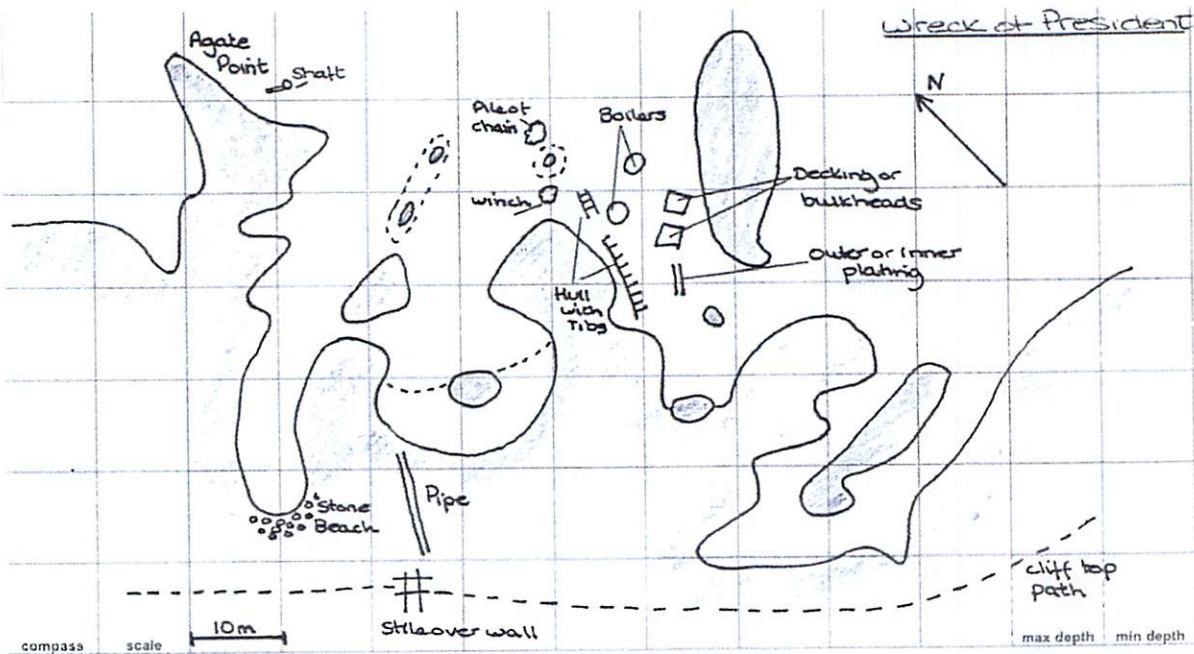 Wreck of President
Agate
Point
Shaft
N
Pile of
chain
Boilers
winch
Decking or
bulkheads
Outer or inner
plating
Hull
with
ribs
Pipe
Stone
Beach
cliff top
path
10m
Stile over wall
compass
scale
max depth
min depth